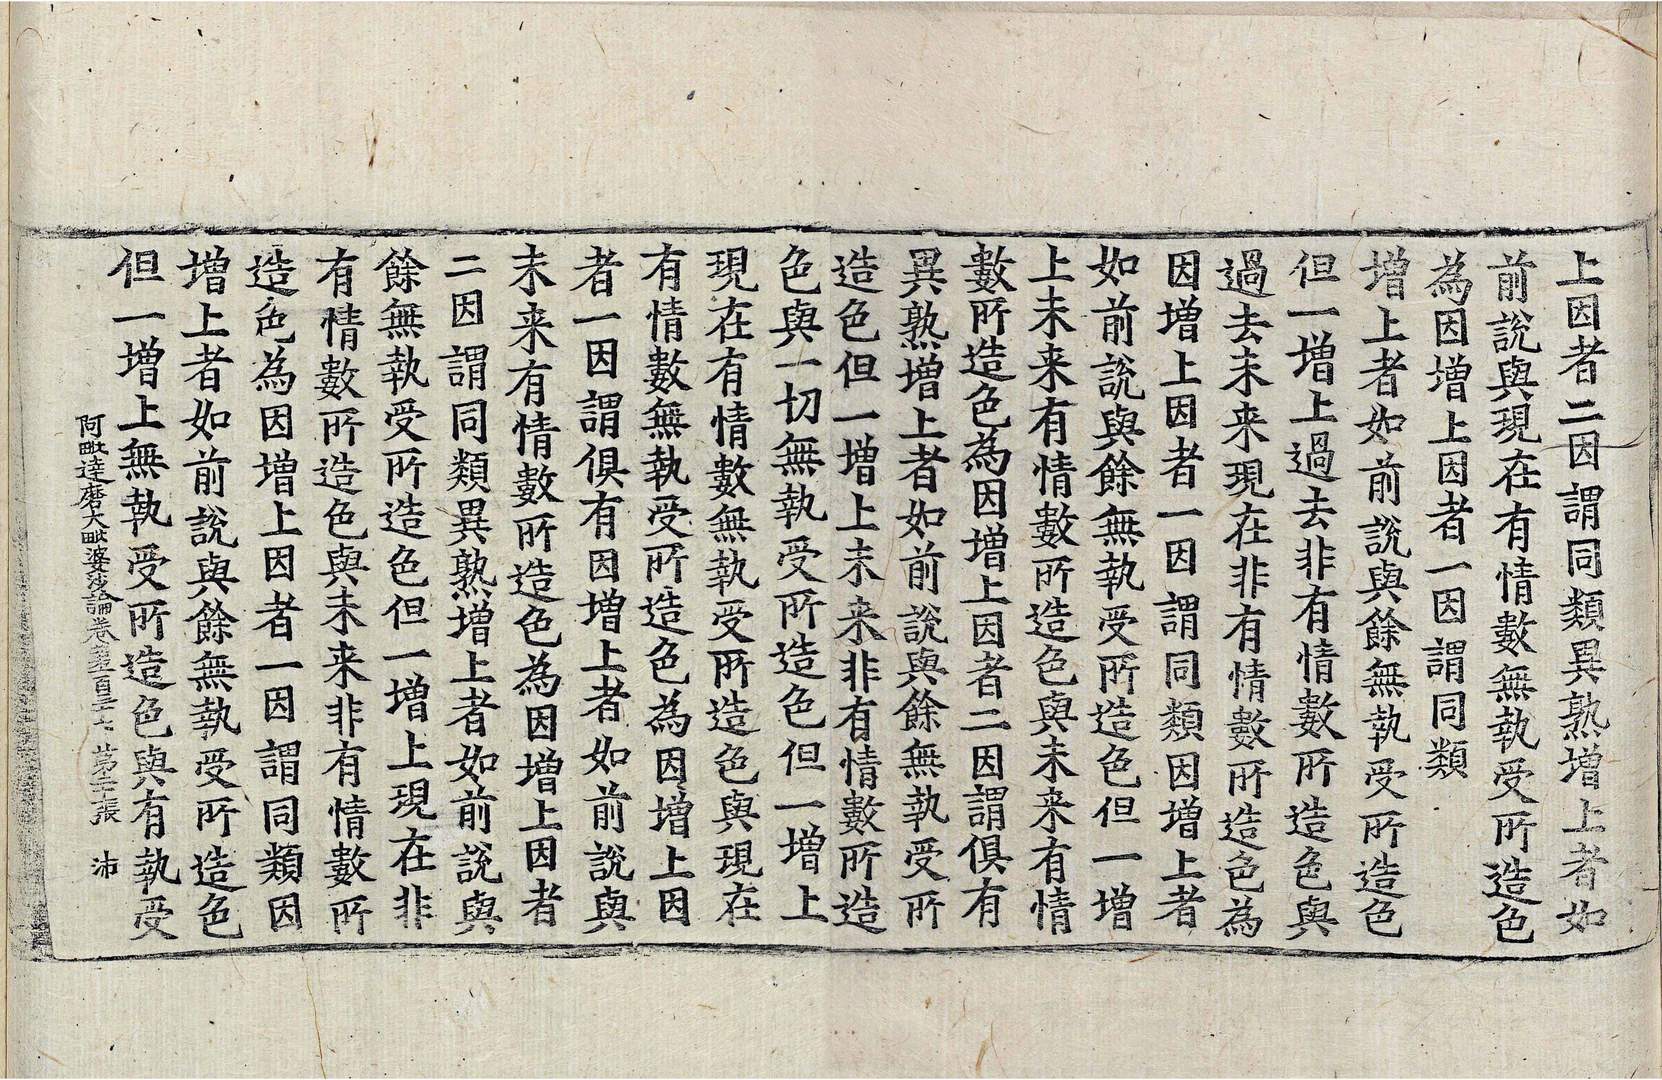 上因者二因謂同類異熟增上者如
前說與現在有情數無執受所造色
為因增上因者一因謂同類
增上者如前說與餘無執受所造色
但一增上過去非有情數所造色與
過去未来現在非有情數所造色為
因增上因者一因謂同類因增上者
如前說與餘無執受所造色但一增
上未来有情數所造色與未来有情
數所造色為因增上因者二因謂俱有
異熟增上者如前說與餘無執受所
造色但一增上未来非有情數所造
色與一切無執受所造色但一增上
現在有情數無執受所造色與現在
有情數無執受所造色為因增上因
者一因謂俱有因增上者如前說與
未来有情數所造色為因增上因者
二因謂同類異熟增上者如前說與
餘無執受所造色但一增上現在非
有情數所造色與未来非有情數所
造色為因增上因者一因謂同類因
增上者如前說與餘無執受所造色
但一增上無執受所造色與有執受
阿毗達磨大毗婆沙論卷第一百三 第 張 沛